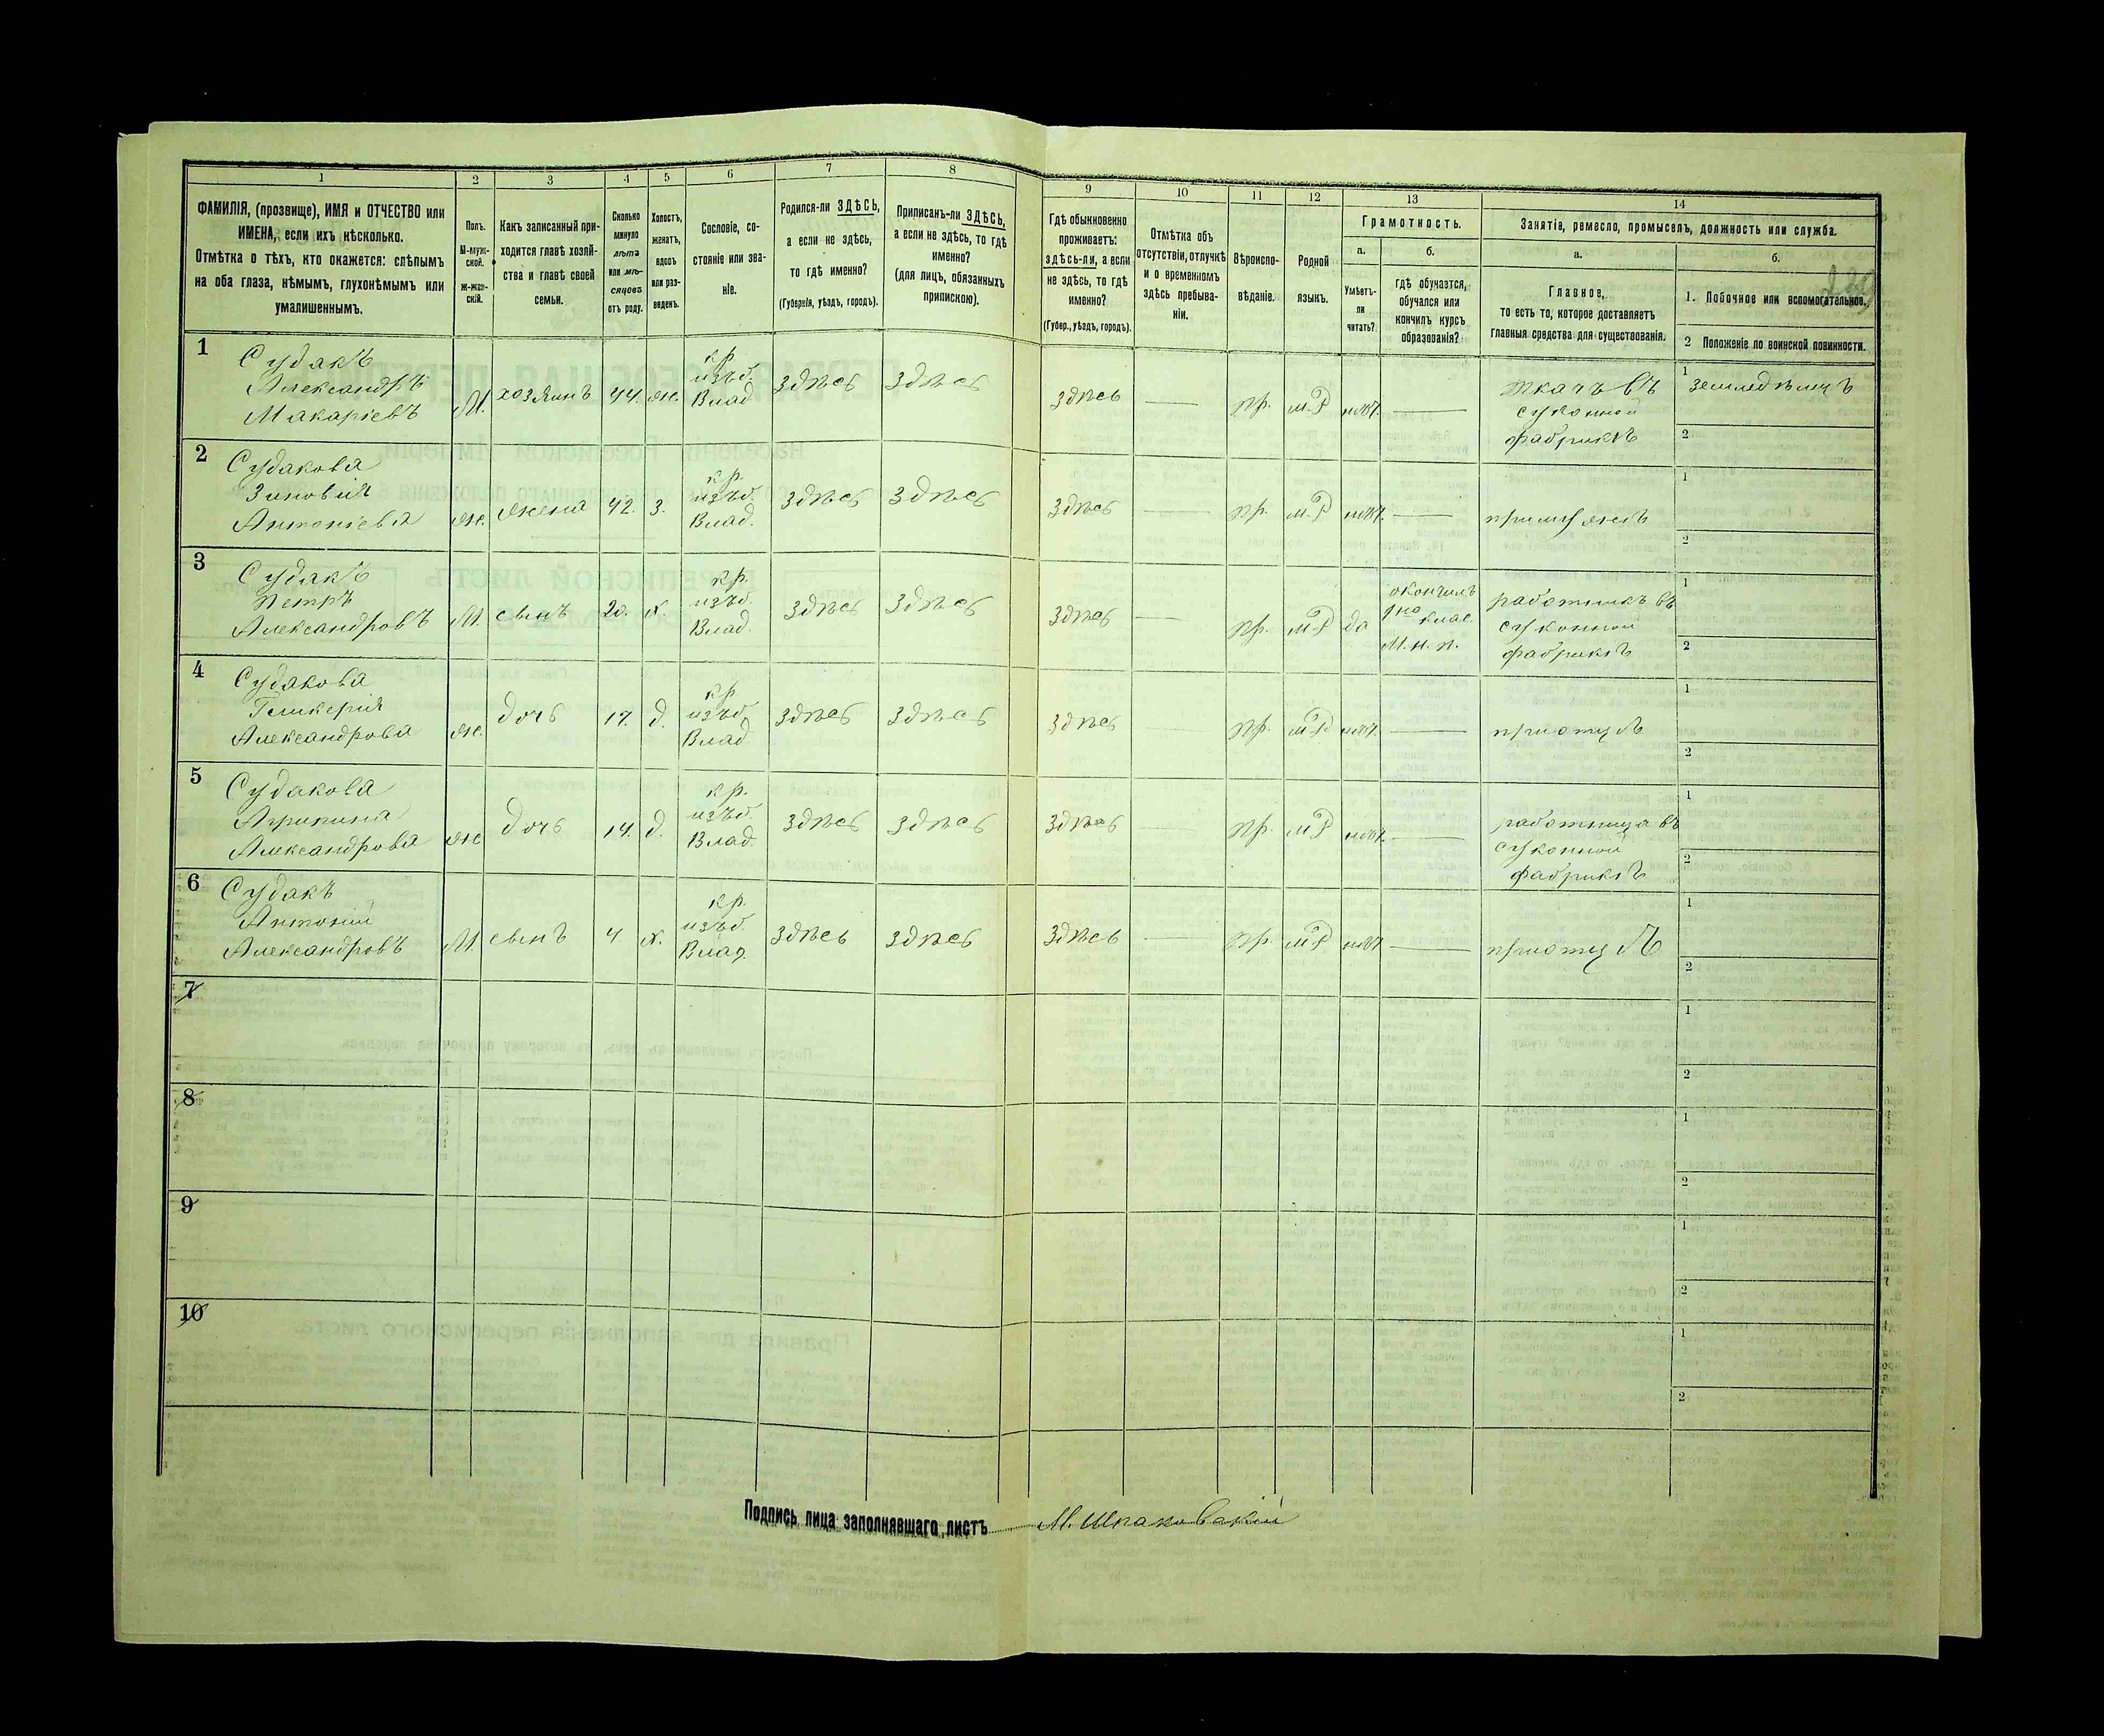 1 2 3 4 5 6 7 8 9 10 11 12 13 14
ФАМИЛІЯ, (прозвище), ИМЯ и ОТЧЕСТВО или
ИМЕНА, если ихъ нѣсколько.
Отмѣтка о тѣхъ, кто окажется: слѣпымъ
на оба глаза, нѣмымъ, глухонѣмымъ или
умалишеннымъ.
Полъ.
М-муж-
ской.
Ж-жен-
скій.
Какъ записанный при-
ходится главѣ хозяй-
ства и главѣ своей
семьи.
Сколько
минуло
лѣтъ
или мѣ-
сяцевъ
отъ роду.
Холостъ,
женатъ,
вдовъ
или раз-
веденъ.
Сословіе, со-
стояніе или зва-
ніе.
Родился-ли ЗДѢСЬ,
а если не здѣсь,
то гдѣ именно?
(Губернія, уѣздъ, городъ).
Приписанъ-ли ЗДѢСЬ,
а если не здѣсь, то гдѣ
именно?
(для лицъ, обязанныхъ
припискою).
Гдѣ обыкновенно
проживаетъ:
здѣсь-ли, а если
не здѣсь, то гдѣ
именно?
(Губер., уѣздъ, городъ).
Отмѣтка объ
отсутствіи, отлучкѣ
и о временномъ
здѣсь пребыва-
ніи.
Вѣроиспо-
вѣданіе.
Родной
языкъ.
Грамотность.
а.
Умѣетъ-
ли
читать?
б.
гдѣ обучается,
обучался или
кончилъ курсъ
образованія?
Занятіе, ремесло, промыселъ, должность или служба.
а.
Главное,
то есть то, которое доставляетъ
главныя средства для существованія.
б.
1. Побочное или вспомогательное.
2 Положеніе по воинской повинности.
1
Судакъ
Александръ
Макаріевъ
М.
хозяинъ
44.
ж.
кр.
изъб.
Влад
здѣсь
здѣсь
здѣсь
пр.
м.Р
нѣт.
ткачъ въ
суконной
фабрикѣ
1
земледѣлецъ
2
2
Судакова
Зиновія
Антоніева
ж.
жена
42.
з.
кр.
изъб.
Влад.
здѣсь
здѣсь
здѣсь
пр.
м.Р
нѣт.
при мужѣ
1
2
3
Судакъ
Петръ
Александровъ
М.
сынъ
20.
х.
кр.
изъб.
Влад.
здѣсь
здѣсь
здѣсь
пр.
м.Р
да
окончилъ
1но клас.
М.н.п.
работникъ въ
суконной
фабрикѣ
1
2
4
Судакова
Гликерія
Александрова
ж.
дочь
17.
д.
кр.
изъб.
Влад
здѣсь
здѣсь
здѣсь
пр.
м.Р
нѣт.
при отцѣ
1
2
5
Судакова
Агрипина
Александрова
ж
дочь
14.
д.
кр.
изъб.
Влад.
здѣсь
здѣсь
здѣсь
пр.
м.Р
нѣт.
работница въ
суконной
фабрикѣ
1
2
6
Судакъ
Антоній
Александровъ
М.
сынъ
4
х.
кр.
изъб.
Влад.
здѣсь
здѣсь
здѣсь
пр.
м.Р
нѣт
при отцѣ
1
2
7
1
2
8
1
2
9
1
2
10
1
2
Подпись лица заполнявшаго листъ М. Шпаковскій